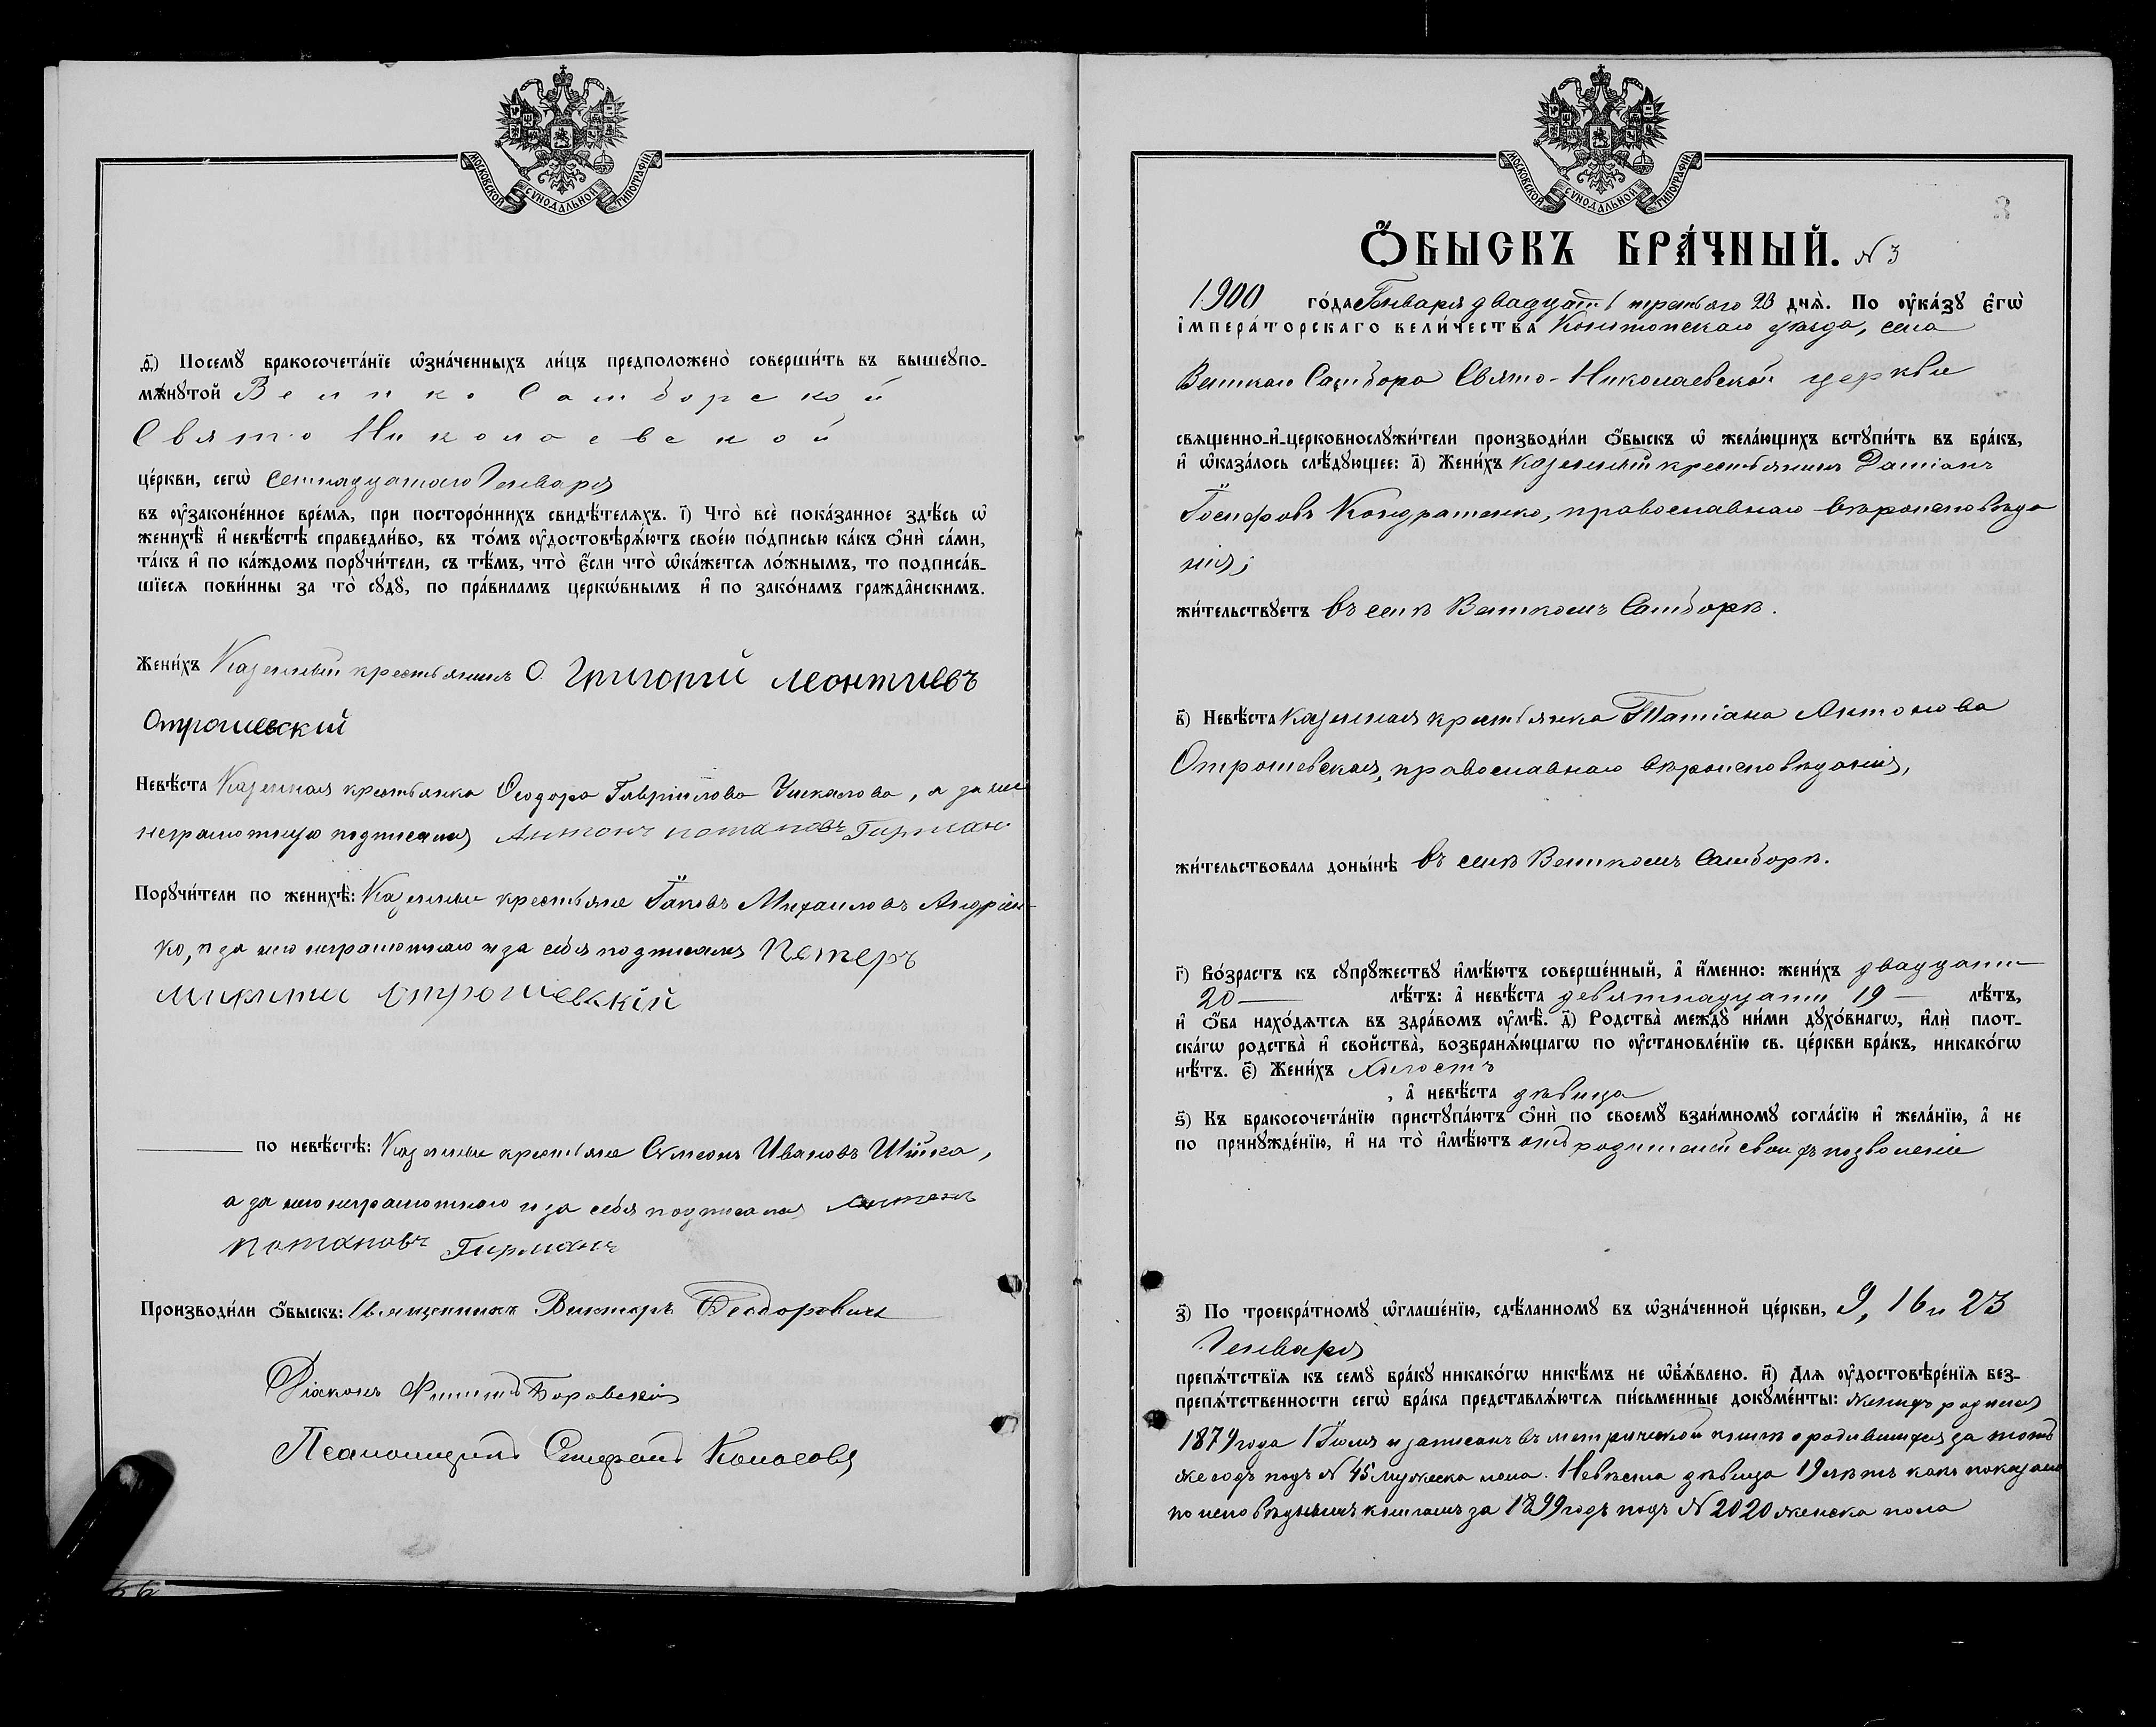 МОСКОВСКОЙ СѴНОДАЛЬНОЙ ТИПОГРАФІИ
ѳ҃) Посемꙋ̀ бракосочета́нїе ѡ҆зна́ченныхъ ли́цъ предположено̀ соверши́ть въ вышеꙋпо-
мѧ́нꙋтой Велико Самборской
Свято Николаевской
це́ркви, сегѡ̀ семнадцатаго Генваря
въ ᲂу҆законе́нное вре́мѧ, при посторо́ннихъ свидѣ́телѧхъ. і҃) Что̀ всѐ пока́занное здѣ́сь ѡ҆
женихѣ̀ и҆ невѣ́стѣ справедли́во, въ то́мъ ᲂу҆достовѣрѧ́ютъ свое́ю по́дписью ка́къ ѻ҆нѝ са́ми,
та́къ и҆ по ка́ждомъ порꙋчи́тели, съ тѣ́мъ, что̀ є҆́сли что̀ ѡ҆ка́жетсѧ ло́жнымъ, то подписа́в-
шїесѧ пови́нны за то̀ сꙋдꙋ̀, по пра́виламъ церкѡ́внымъ и҆ по зако́намъ гражда̂нскимъ.
Жени́хъ Казенный крестьянинъ О. Григорий Леонтиевъ
Отрошевский
Невѣ́ста Казенная крестьянка Ѳеодора Гавріилова Ушкалова, а за нее
неграмотную подписался Антонъ потаповъ Гирман
Порꙋчи́тели по женихѣ̀: Казенные крестьяне Іаковъ Михаиловъ Андріен-
ко, а за него неграмотнаго и за себя подписался
Микита Отрошевский
по невѣ́стѣ: Казенные крестьяне Симеонъ Ивановъ Шійка,
а за него неграмотнаго и за себя подписался Антонъ
потаповъ Гирманъ
Производи́ли ѻ҆́быскъ: Священникъ Викторъ Ѳеодоровичъ
Діаконъ Филиппъ Боровскій
Псаломщикъ Стефанъ Колосовъ
МОСКОВСКОЙ СѴНОДАЛЬНОЙ ТИПОГРАФІИ
3
Ѻ҆́БЫСКЪ БРА́ЧНЫЙ. N 3
1900 го́да Генваря двадцать третьяго 23 днѧ̀. По ᲂу҆ка́зꙋ є҆гѡ̀
і҆мпера́торскаго вели́чества Конотопскаго уѣзда, села
Великаго Самбора Свято-Николаевской церкви
свѧщенно-и҆-церковнослꙋжи́тели производи́ли ѻ҆́быскъ ѡ҆ жела́ющихъ встꙋпи́ть въ бра́къ,
и҆ ѡ҆каза́лось слѣ́дꙋющее: а҃) Жени́хъ казенный крестьянинъ Даміанъ
Іосифовъ Кондратенко, православнаго вѣроисповѣда
нія;
жи́тельствꙋетъ въ селѣ Великомъ Самборѣ.
в҃) Невѣ́ста казенная крестьянка Татіана Антонова
Отрошевская, православнаго вѣроисповѣданія,
жи́тельствовала доны́нѣ въ селѣ Великомъ Самборѣ.
г҃) Во́зрастъ къ сꙋпрꙋ́жествꙋ и҆мѣ́ютъ соверше́нный, а҆ и҆́менно: жени́хъ двадцати
20 — лѣ́тъ: а҆ невѣ́ста девятнадцати 19 — лѣ́тъ,
и҆ ѻ҆́ба нахо́дѧтсѧ въ здра́вомъ ᲂу҆мѣ̀. д҃) Родства̀ междꙋ̀ ни́ми дꙋхо́внагѡ, и҆лѝ плот-
ска́гѡ родства̀ и҆ свойства̀, возбранѧ́ющагѡ по ᲂу҆становле́нїю св. це́ркви бра́къ, никако́гѡ
нѣ́тъ. є҃) Жени́хъ холостъ
, а҆ невѣ́ста дѣвица
ѕ҃) Къ бракосочета́нїю пристꙋпа́ютъ ѻ҆нѝ по своемꙋ̀ взаи́мномꙋ согла́сїю и҆ жела́нїю, а҆ не
по принꙋжде́нїю, и҆ на то̀ и҆мѣ́ютъ отъ родителей своихъ позволеніе
з҃) По троекра́тномꙋ ѡ҆глаше́нїю, сдѣ́ланномꙋ въ ѡ҆зна́ченной це́ркви, 9, 16 и 23
Генваря
препѧ́тствїѧ къ семꙋ̀ бра́кꙋ никако́гѡ никѣ́мъ не ѡ҆б̾ѧ́влено. и҃) Длѧ ᲂу҆достовѣре́нїѧ без-
препѧ́тственности сегѡ̀ бра́ка представлѧ́ютсѧ пи́сьменные докꙋме́нты: женихъ родился
1879 года 1 Іюля и записанъ въ метрической книгѣ о родившихся за тотъ
же годъ подъ N 45 мужеска пола. Невѣста дѣвица 19 лѣтъ какъ показано
по исповѣднымъ книгамъ за 1899 годъ подъ N 2020 женска пола